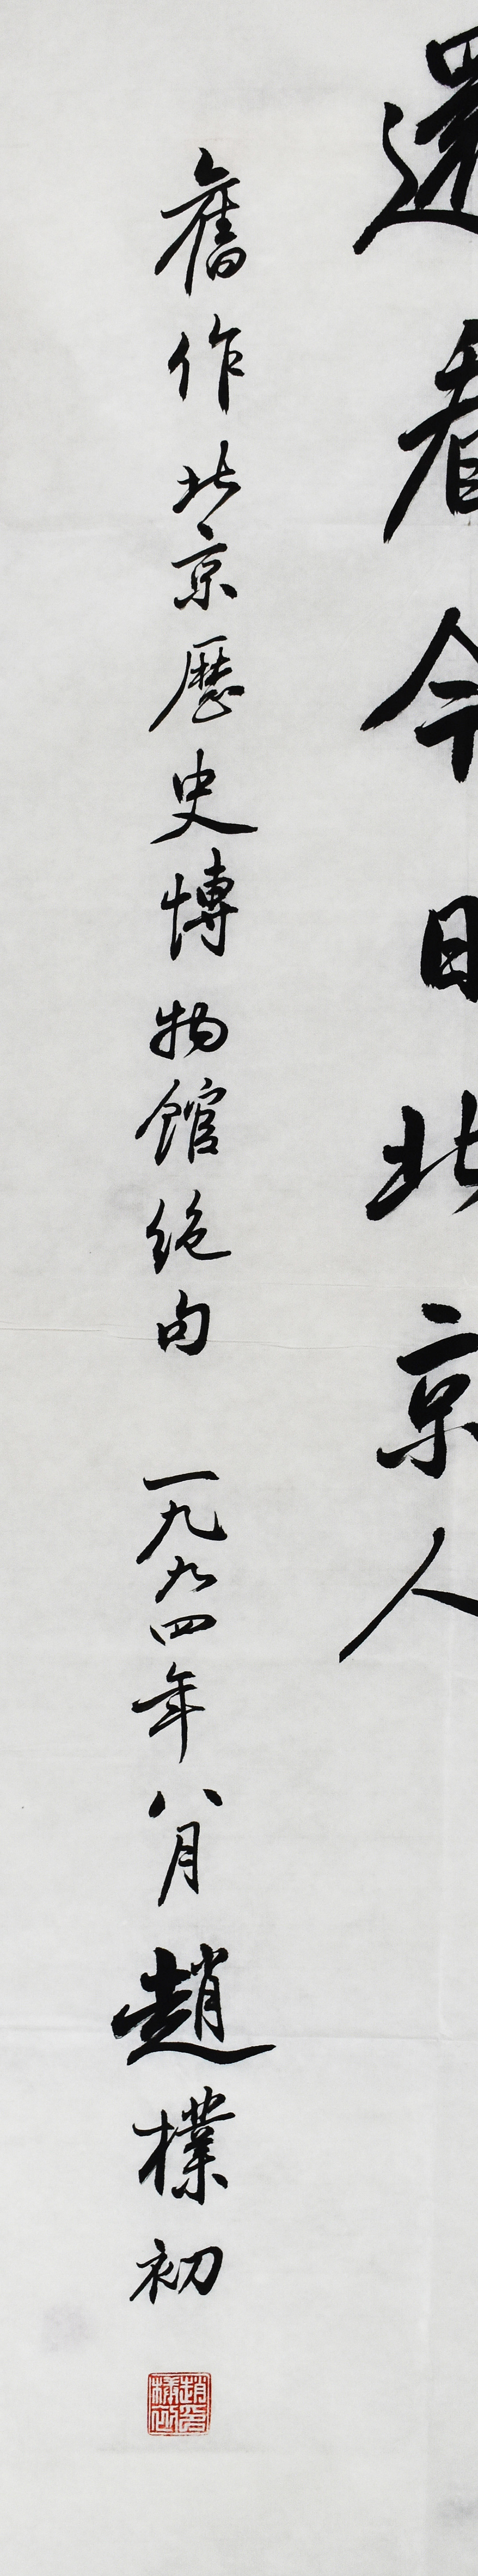 還看今日北京人
舊作北京歷史博物館絶句 一九九四年八月趙樸初